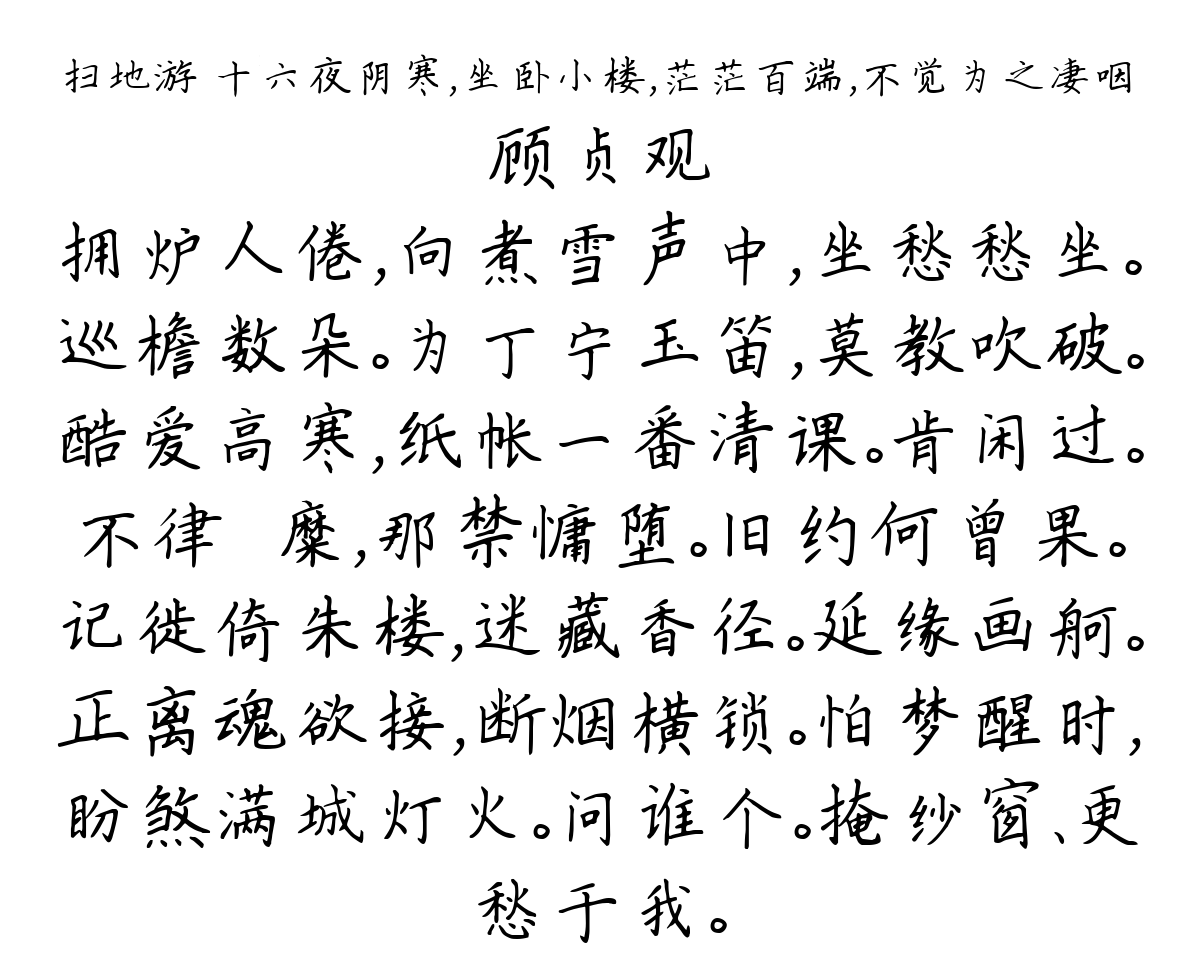 扫地游 十六夜阴寒,坐卧小楼,茫茫百端,不觉为之凄咽
顾贞观
拥炉人倦,向煮雪声中,坐愁愁坐。
巡檐数朵。为丁宁玉笛,莫教吹破。
酷爱高寒,纸帐一番清课。肯闲过。
不律 糜,那禁慵堕。旧约何曾果。
记徙倚朱楼,迷藏香径。延缘画舸。
正离魂欲接,断烟横锁。怕梦醒时,
盼煞满城灯火。问谁个。掩纱窗、更
愁于我。